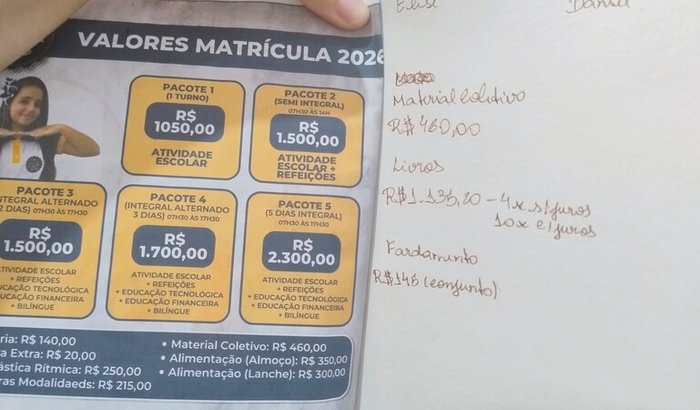 VALORES MATRÍCULA 2026
PACOTE 1
(1 TURNO)
R$
1050,00
ATIVIDADE
ESCOLAR
PACOTE 2
(SEMI INTEGRAL)
07H30 ÀS 14H
R$
1.500,00
ATIVIDADE
ESCOLAR +
REFEIÇÕES
PACOTE 3
INTEGRAL ALTERNADO
2 DIAS) 07H30 ÀS 17H30
R$
1.500,00
ATIVIDADE ESCOLAR
+ REFEIÇÕES
EDUCAÇÃO TECNOLÓGICA
EDUCAÇÃO FINANCEIRA
+ BILÍNGUE
PACOTE 4
(INTEGRAL ALTERNADO
3 DIAS) 07H30 ÀS 17H30
R$
1.700,00
ATIVIDADE ESCOLAR
+ REFEIÇÕES
+ EDUCAÇÃO TECNOLÓGICA
+ EDUCAÇÃO FINANCEIRA
+ BILÍNGUE
PACOTE 5
(5 DIAS INTEGRAL)
07H30 ÀS 17H30
R$
2.300,00
ATIVIDADE ESCOLAR
+ REFEIÇÕES
+ EDUCAÇÃO TECNOLÓGICA
+ EDUCAÇÃO FINANCEIRA
+ BILÍNGUE
ria: R$ 140,00
a Extra: R$ 20,00
ástica Rítmica: R$ 250,00
ras Modalidaeds: R$ 215,00
• Material Coletivo: R$ 460,00
• Alimentação (Almoço): R$ 350,00
• Alimentação (Lanche): R$ 300,00
Elise Daniel
Material Coletivo
R$ 460,00
Livros
R$ 1.135,20 - 4x s/juros
10x c/juros
Fardamento
R$ 145 (conjunto)